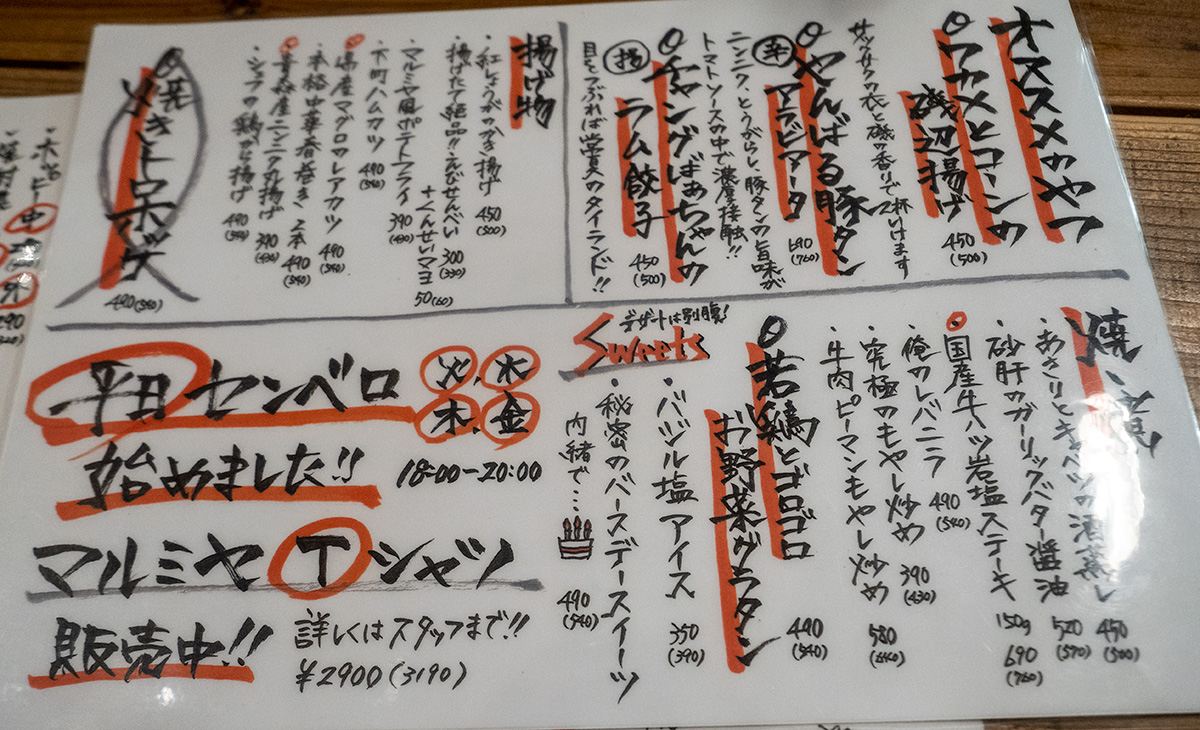 オススメのやつ
ワカメとコーンの
磯辺揚げ
450
(500)
サックサクの衣と磯の香りで2杯いけます
やんばる豚タン
辛
アラビアータ
690
(760)
ニンニク、とうがらし、豚タンの旨味が
トマトソースの中で濃厚接触!!
チャングばぁちゃんの
揚
ラム餃子
450
(500)
目をつぶれば気分のタイランド!!
揚げ物
・紅しょうがのかき揚げ 450
(500)
・揚げたて絶品!!えびせんべい 300
(330)
+くんせいマヨ 50(60)
・マルミヤ風ポテトフライ 390
(430)
・下町ハムカツ 490
(540)
・マグロのレアカツ 490
(540)
・本格中華春巻き 2本 490
(540)
・青森産ニンニク丸揚げ 390
(430)
・シェフの鶏から揚げ 490
(540)
焼きトロホッケ
490(540)
あさりとキャベツの酒蒸し 450
(500)
砂肝のガーリックバター醤油 520
(570)
国産牛ハツ岩塩ステーキ 150g 690
(760)
俺のレバニラ 490
(540)
究極のもやし炒め 390
(430)
牛肉ピーマンもやし炒め 580
(640)
若鶏とゴロゴロ
お野菜グラタン
490
(540)
デザートは別腹!
Sweets
・バジル塩アイス 350
(390)
・秘密のバースデースイーツ
内緒で…
490
(540)
平日センベロ
火.水
木.金
始めました!!
18:00-20:00
マルミヤTシャツ
販売中!!
詳しくはスタッフまで!!
¥2900(3190)